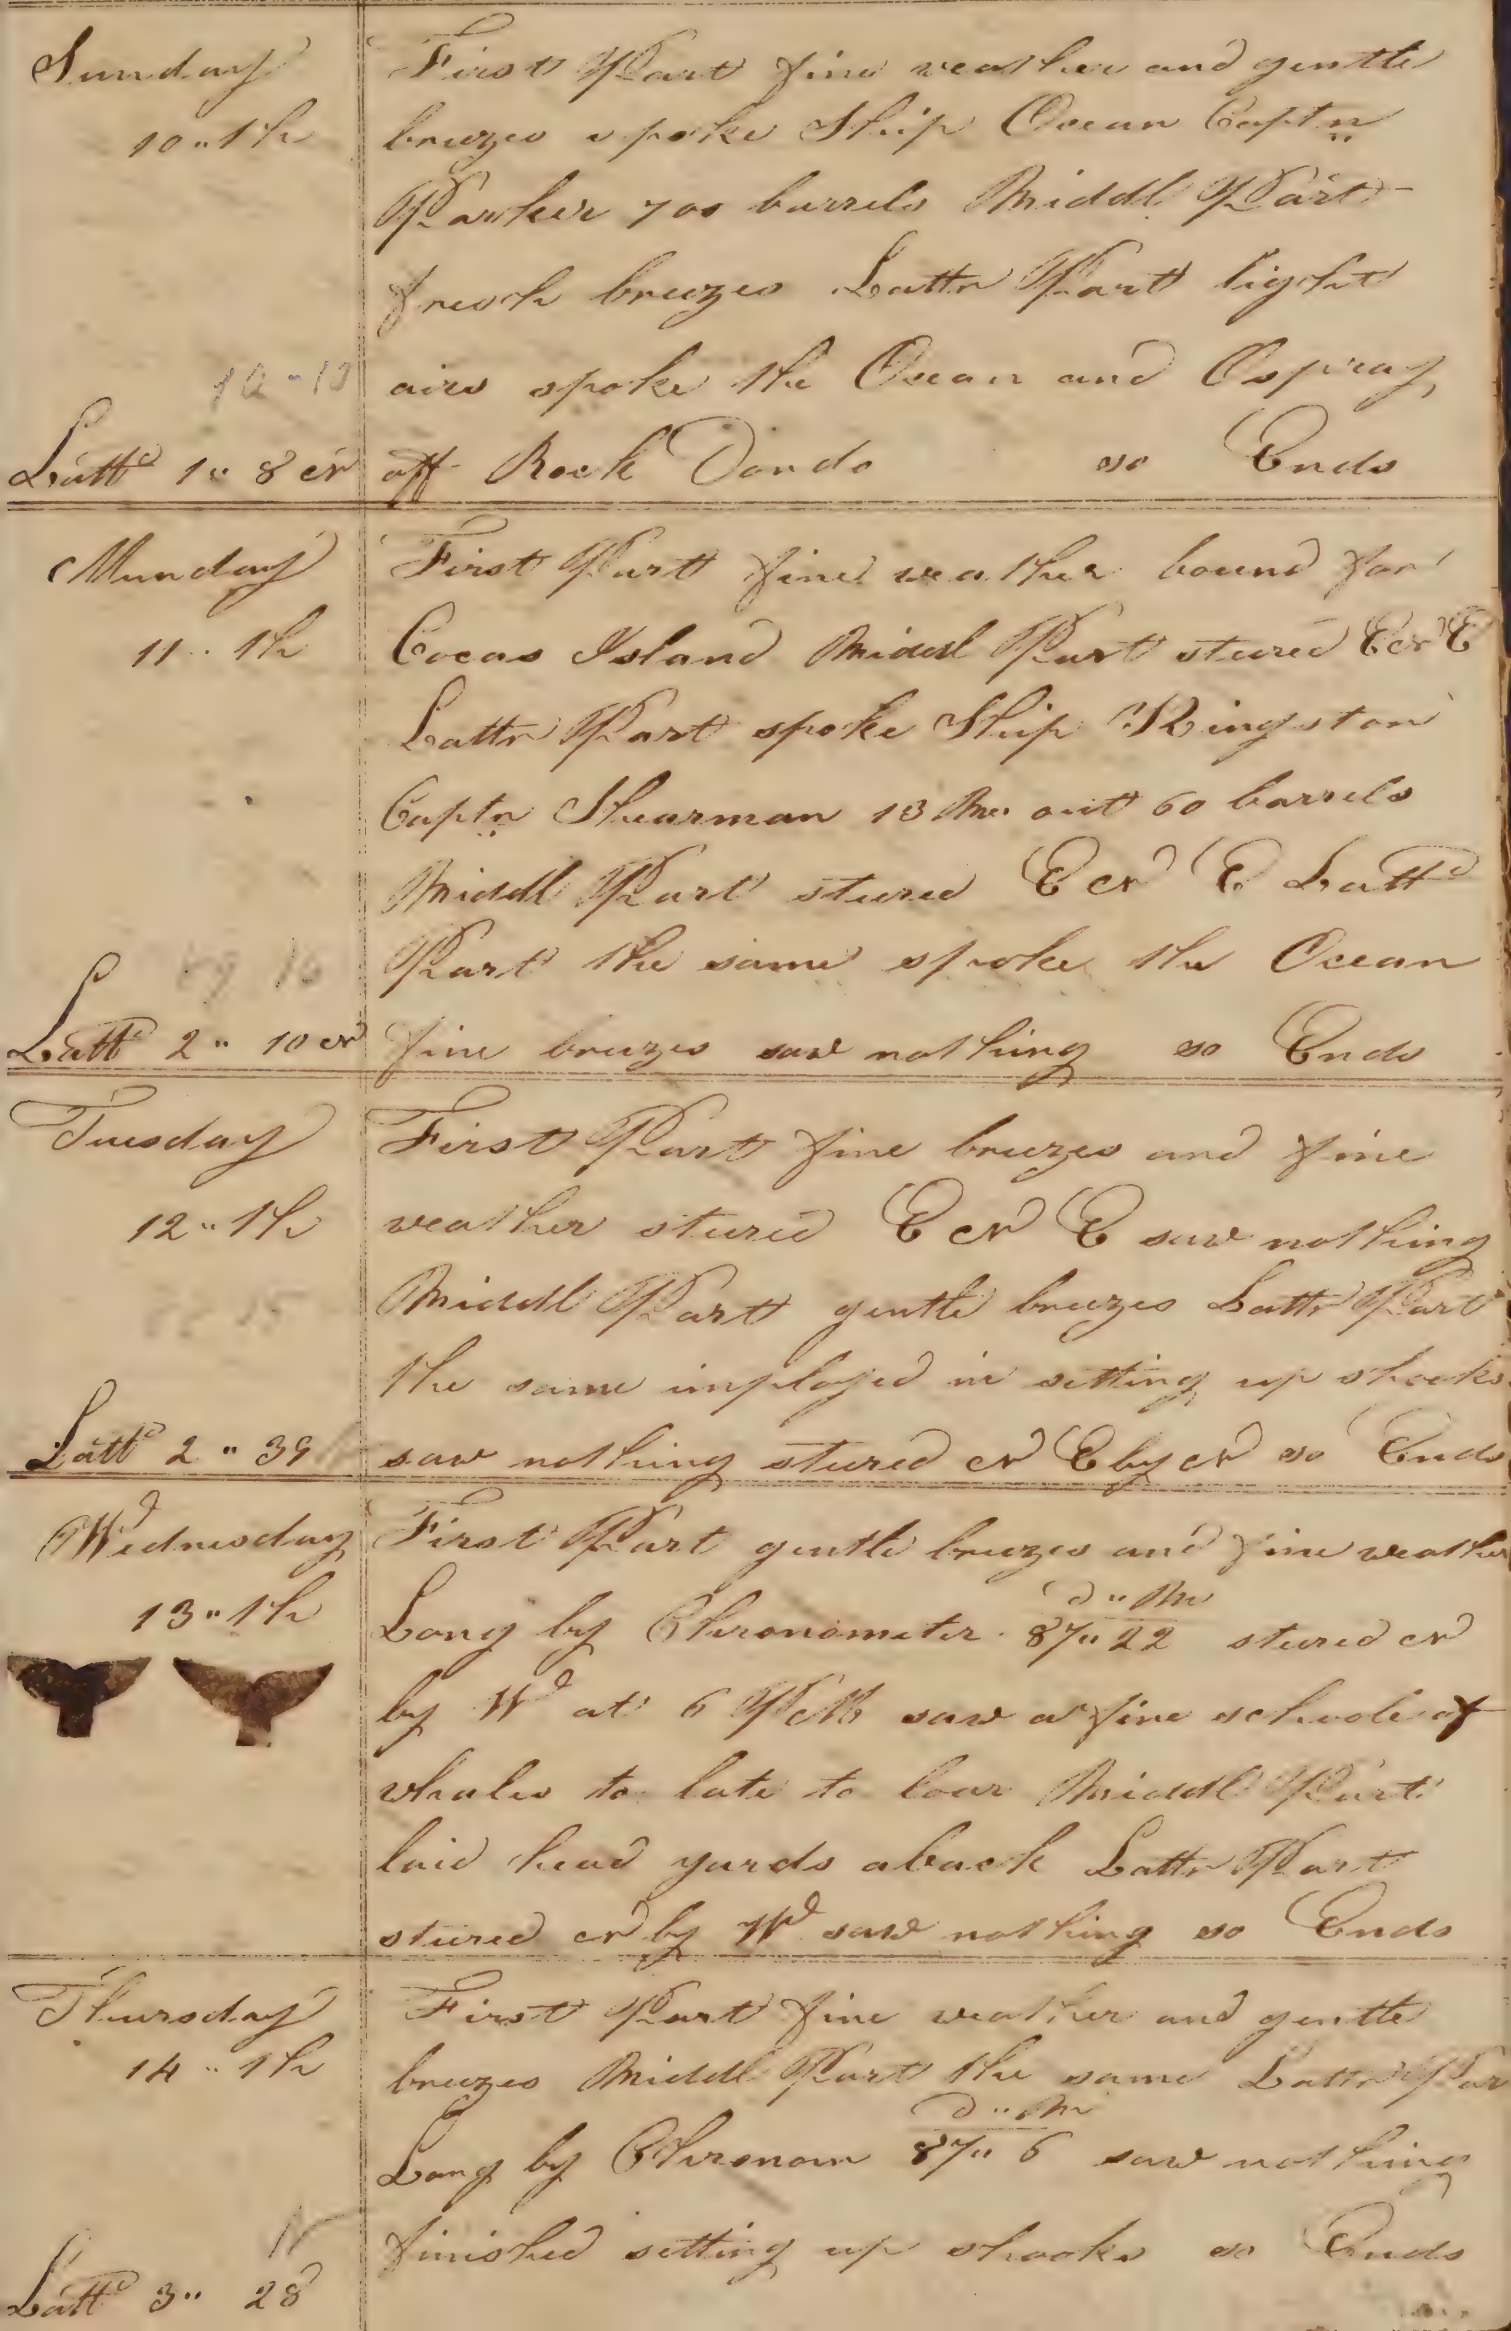 Sunday
10"th
Lattd 1" 8 N
First Part fine weather and gentle
breezes spoke Ship Ocean Captn
Parker 700 barrels Middl Part
fresh breezes Lattr Part light
airs spoke the Ocean and Ospray
off Rock Dondo so Ends
Munday
11"th
Lattd 2" 10 N
First Part fine weather bound for
Cocas Island Middl Part stured E N E
Lattr Part spoke Ship Kingston
Captn Shearman 13 Mo out 60 barrels
Middl Part stured E N E Lattd
Part the same spoke the Ocean
fine breezes saw nothing so Ends
Tuesday
12"th
Lattd 2" 39
First Part fine breezes and fine
weather stured E N E saw nothing
Middl Part gentle breezes Lattr Part
the same imployed in setting up shooks
saw nothing stured N E by N so Ends
Wednesday
13"th
First Part gentle breezes and fine weather
d " m
Long by Chronometer 87" 22 stured N
by Wd at 6 PM saw a fine schoole of
whales to late to loar Middl Part
laid head yards aback Lattr Part
stured N by Wd saw nothing so Ends
Thursday
14"th
Lattd 3" 28
First Part fine weather and gentle
breezes Middl Part the same Lattr Par
d " m
Long by Chronom 87" 6 saw nothing
finished setting up shooks so Ends